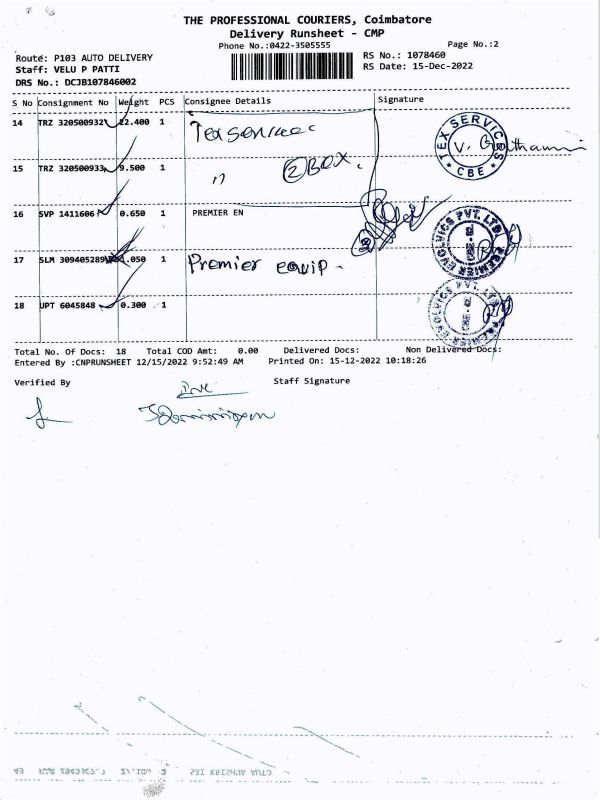 THE PROFESSIONAL COURIERS, Coimbatore
Delivery Runsheet - CMP
Phone No.:0422-3505555
Page No.:2
Route: P103 AUTO DELIVERY
RS No.: 1078460
Staff: VELU P PATTI
RS Date: 15-Dec-2022
DRS No.: DCJB107846002
S No Consignment No Weight PCS Consignee Details Signature
14 TRZ 320500932 22.400 1 Tex services
TEX SERVICES CBE
15 TRZ 320500933 9.500 1 " 2 BOX.
16 SVP 1411606 0.650 1 PREMIER EN
PREMIER EVOLVICS PVT. LTD. CBE
17 SLM 309405289 1.050 1 Premier equip.
PREMIER EVOLVICS PVT. LTD. CBE
18 UPT 6045848 0.300 1
Total No. Of Docs: 18 Total COD Amt: 0.00 Delivered Docs: Non Delivered Docs:
Entered By :CNPRUNSHEET 12/15/2022 9:52:49 AM Printed On: 15-12-2022 10:18:26
Verified By Staff Signature
SRI KRISHNA AUTO